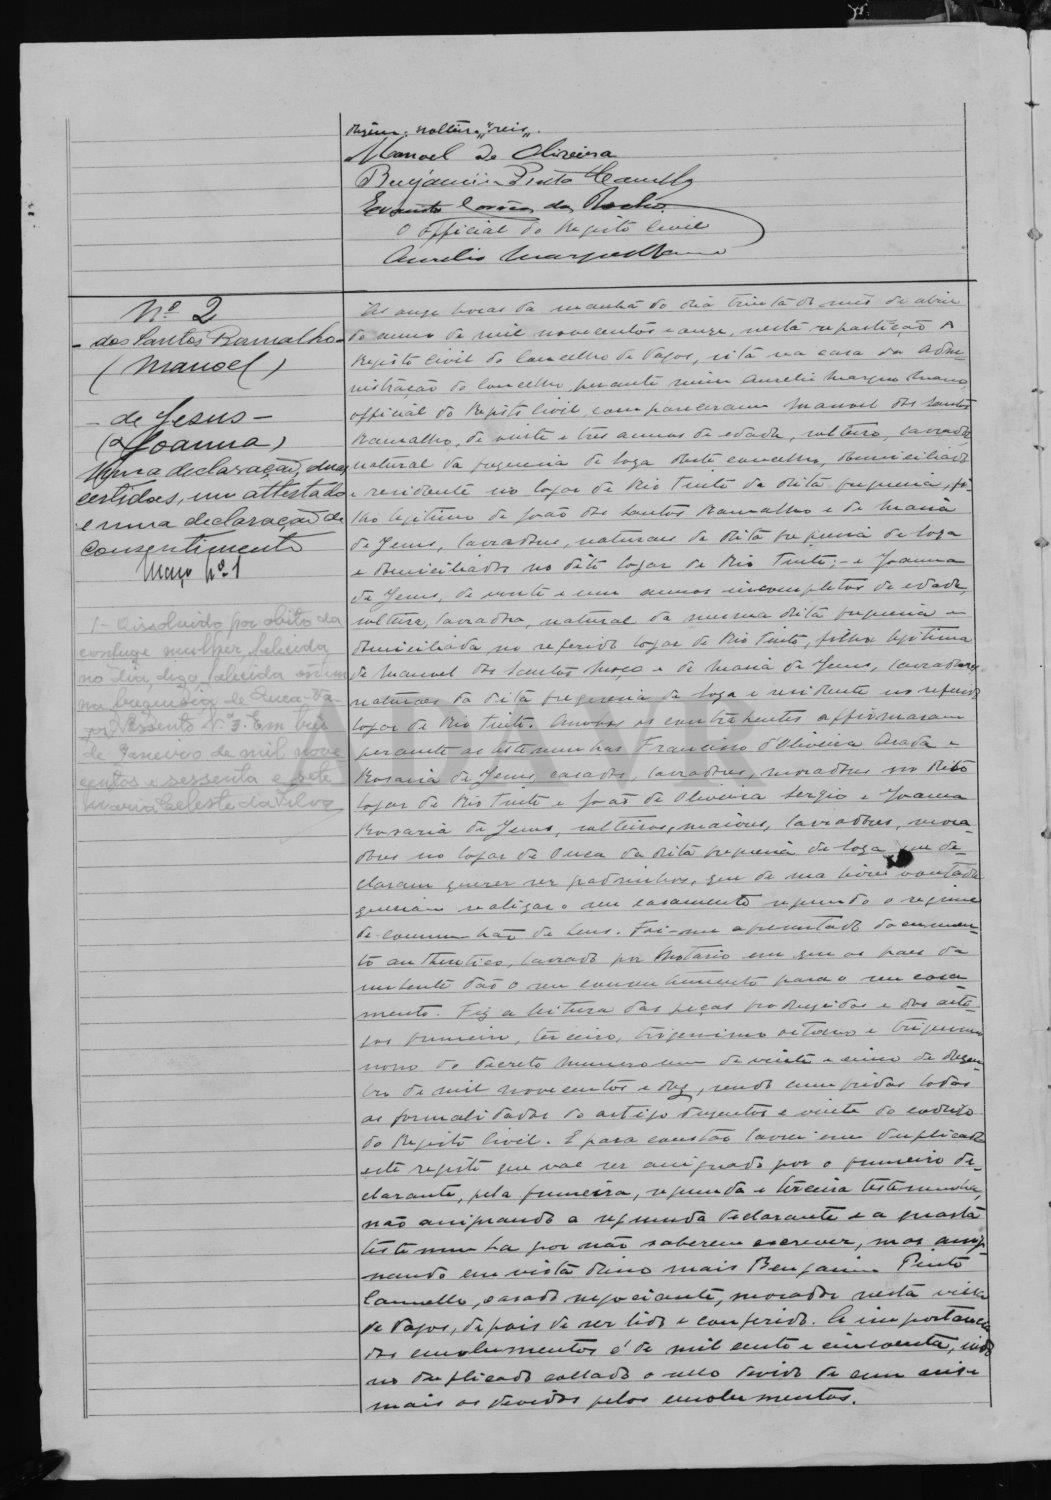 Manoel de Oliveira
Benjamin Pinto Camello
O official do Registo Civil
Nº 2
- dos Santos Ramalho -
(Manoel)
- de Jesus -
(Joanna)
Uma declaração, duas
certidões, um attestado
e uma declaração de
consentimento
Maço Nº 1
1 - Dissolvido por obito da
conjuge mulher, falecida
no dia, digo, falecida
na freguesia de Ouca - Va-
gos, Assento Nº 3. Em tres
de Janeiro de mil nove
centos e sessenta e sete
Maria Celeste da Silva
Ás onze horas da manhã do dia trinta do mês de abril
do anno de mil novecentos e onze, nesta repartição do
Registo Civil do Concelho de Vagos, sita na casa da Admi-
nistração do Concelho perante mim Aurelio Marques Mano,
official do Registo Civil, compareceram Manoel dos Santos
Ramalho, de vinte e tres annos de edade, solteiro, lavrador
natural da freguesia de Soza deste concelho, domiciliado
e residente no logar de Rio Tinto da dita freguesia, fi-
lho legitimo de João dos Santos Ramalho e de Maria
de Jesus, lavradores, naturaes da dita freguesia de Soza
e domiciliados no dito logar de Rio Tinto; - e Joanna
de Jesus, de vinte e um annos incompletos de edade,
solteira, lavradora, natural da mesma dita freguesia e
domiciliada no referido logar de Rio Tinto, filha legitima
de Manoel dos Santos e de Maria de Jesus, lavradores,
naturaes da dita freguesia de Soza e residente no referido
logar de Rio Tinto. Ambos os contrahentes affirmaram
perante as testemunhas Francisco d'Oliveira e
Rosaria de Jesus, casados, lavradores, moradores no dito
logar de Rio Tinto e João de Oliveira Sergio e Joanna
Rosaria de Jesus, solteiros, maiores, lavradores, mora-
dores no logar de Ouca da dita freguesia de Soza que de-
claram querer ser padrinhos, que de sua livre vontade
queriam realizar o seu casamento segundo o regimen
de communhão de bens. Foi-me apresentado documen-
to authentico, lavrado por Notario em que os paes da
nubente dão o seu consentimento para o seu casa
mento. Fiz a leitura das peças produzidas e dos arti-
gos primeiro, terceiro, trigesimo oitavo e trigesimo
nono do decreto numero um de vinte e cinco de dezem-
bro de mil novecentos e dez, sendo cumpridas todas
as formalidades do artigo duzentos e vinte do codigo
do Registo Civil. E para constar lavrei em duplicado
este registo que vae ser assignado por o primeiro de-
clarante, pela primeira, segunda e terceira testemunha,
não assignando a segunda declarante e a quarta
testemunha por não saberem escrever, mas assig-
nando em vista disso mais Benjamin Pinto
Camello, casado negociante, morador nesta villa
de Vagos, depois de ser lido e conferido. A importancia
dos emolumentos é de mil cento e cincoenta, indo
no duplicado collado o sello devido de cem reis e
mais os devidos pelos emolumentos.
ADAVR